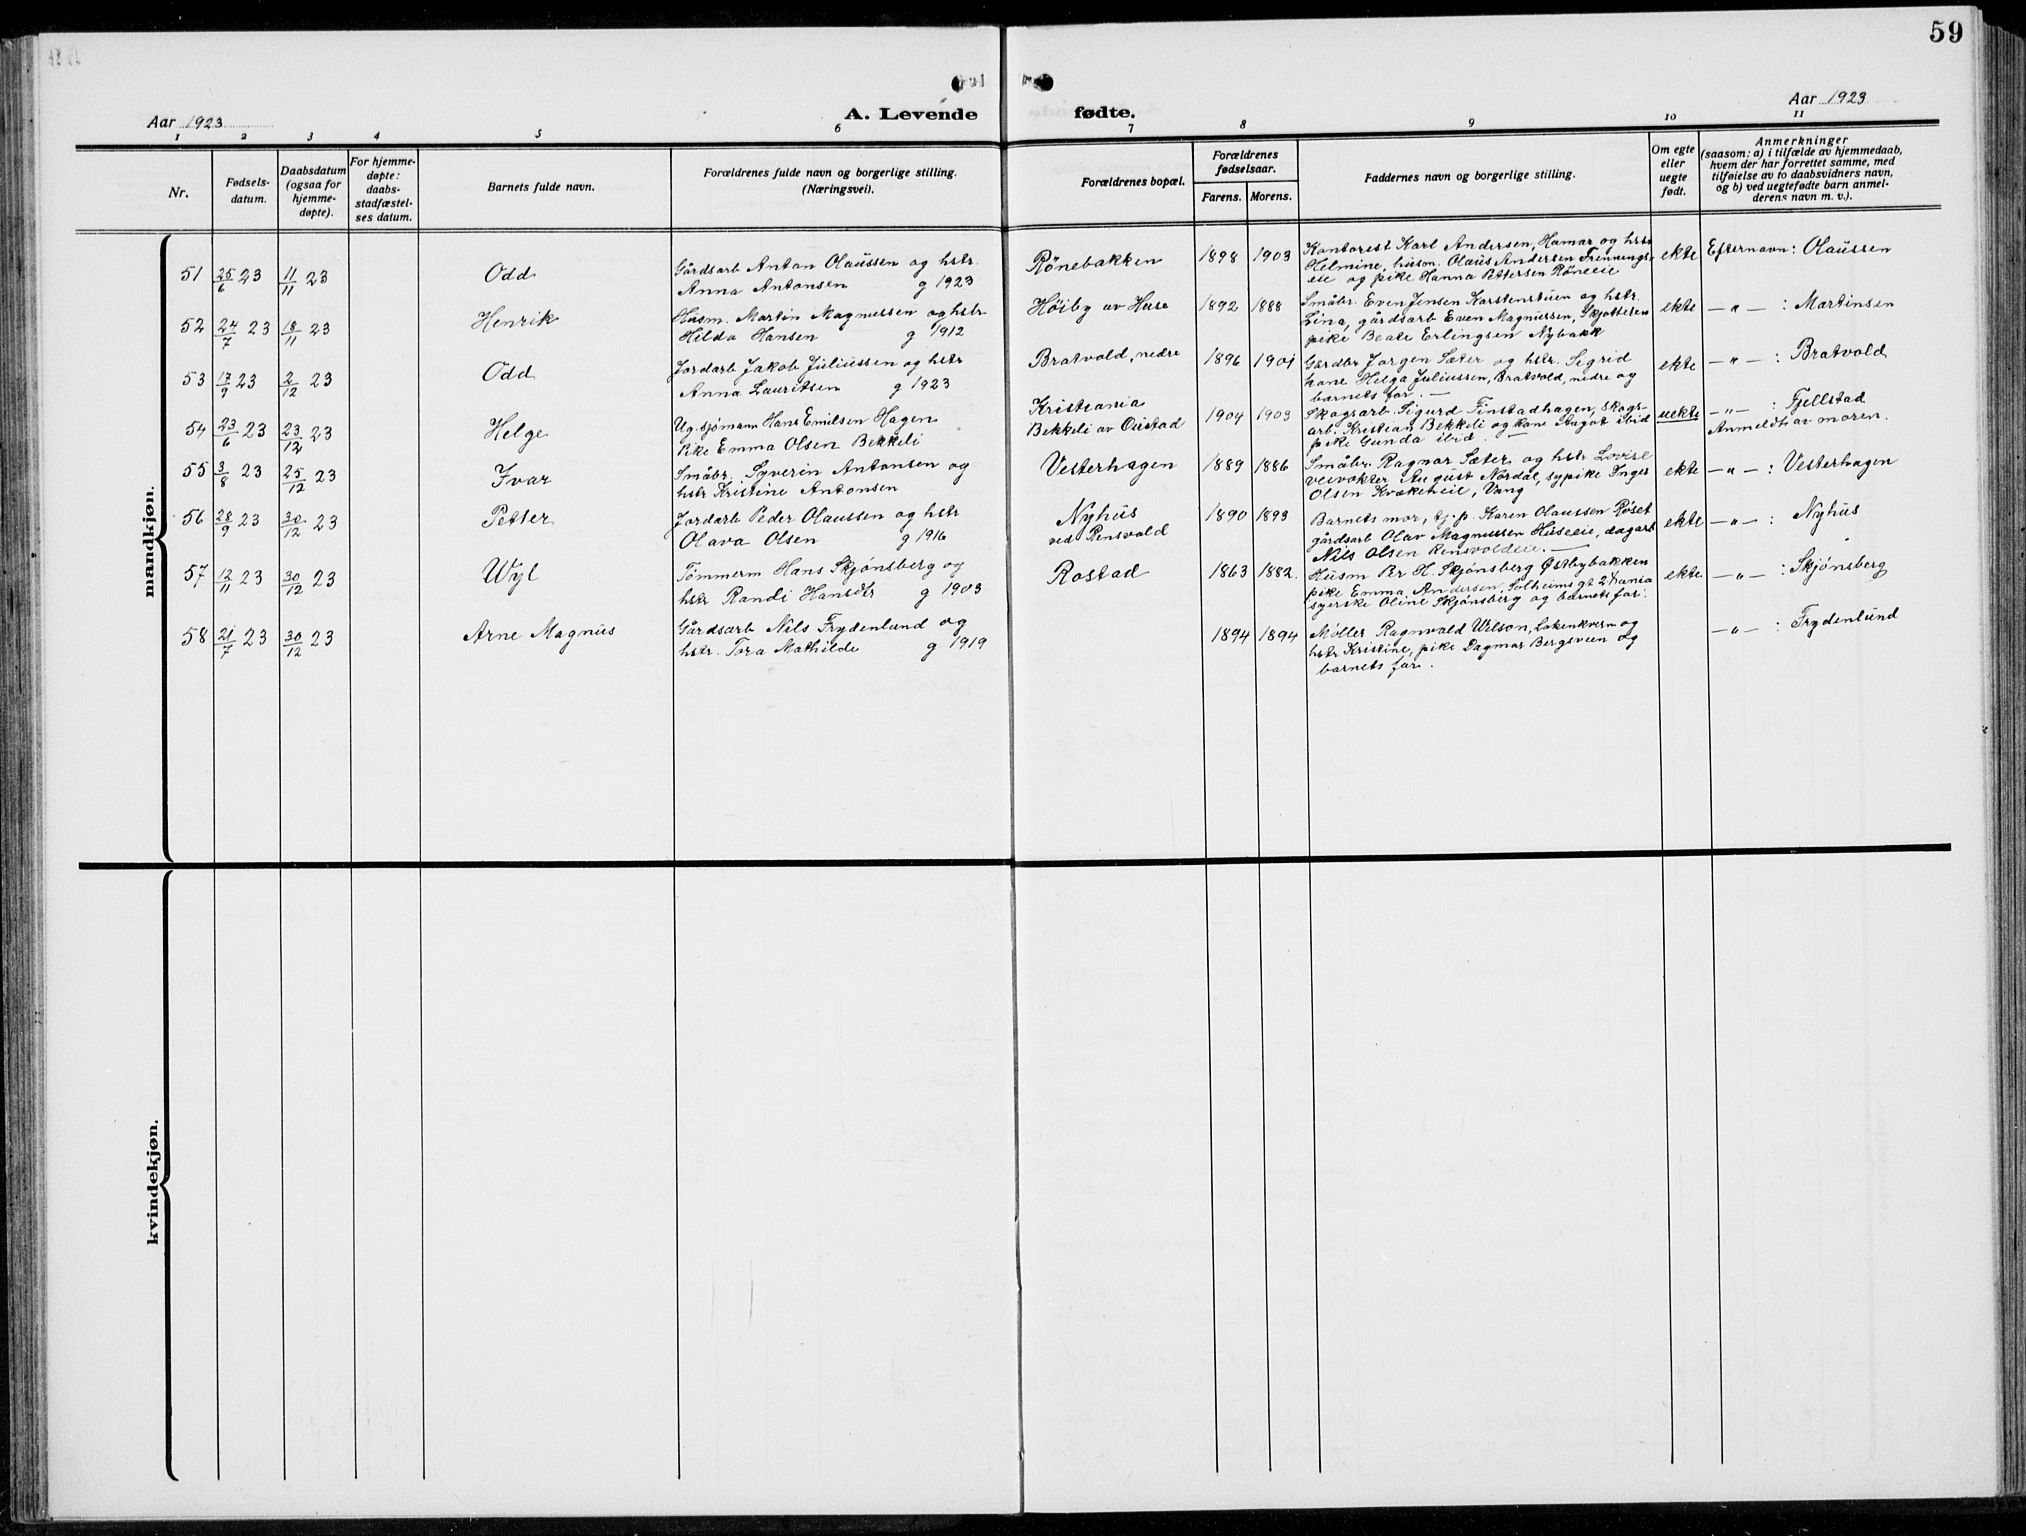 59
Aar 1923
A. Levende fødte.
Aar 1923
1 2 3 4 5 6 7 8 9 10 11
Nr.
Fødsels-
datum.
Daabsdatum
(ogsaa for
hjemme-
døpte).
For hjemme-
døpte:
daabs-
stadfæstel-
ses datum.
Barnets fulde navn.
Forældrenes fulde navn og borgerlige stilling.
(Næringsvei).
Forældrenes bopæl.
Forældrenes
fødselsaar.
Farens. Morens.
Faddernes navn og borgerlige stilling.
Om egte
eller
uegte
født.
Anmerkninger
(saasom: a) i tilfælde av hjemmedaab,
hvem der har forrettet samme, med
tilføielse av to daabsvidners navn,
og b) ved uegtefødte barn anmel-
derens navn m. v.).
mandkjøn.
51 25/6 23 11/11 23 Odd
Gårdsarb Anton Olaussen og hstr.
Anna Antonsen g 1923
Rönebakken 1898 1903
Kontorist Karl Andersen, Hamar og hstr
Helmine, husm. Olaus Andersen Trennings-
eie og pike Hanna Pettersen Röneeie
ekte Efternavn: Olaussen
52 24/7 23 18/11 23 Henrik
Husm. Martin Magnussen og hstr
Hilda Hansen g 1912
Höiby av Huse 1892 1888
Småbr. Even Jensen Karstenstuen og hstr.
Lina, gårdsarb Even Magnussen, Skjotteren
pike Beate Erlingsen Nybakk
ekte —"— : Martinsen
53 17/9 23 2/12 23 Odd
Jordarb Jakob Juliussen og hstr
Anna Lauritsen g 1923
Bratvold, nedre 1896 1901
Gårdbr Jörgen Sæter og hstr. Sigrid
kone Helga Juliussen, Bratvold, nedre og
barnets far. —
ekte —"— : Bratvold
54 23/6 23 23/12 23 Helge
Ug. sjømann Hans Emilsen Hagen
Pike Emma Olsen Bekkeli
Kristiania
Bekkeli av Ouistad 1904 1903
Skogsarb. Sigurd Finstadhagen, skogs-
arb. Kristian Bekkeli og kone Aagot ibid
pike Gunda ibid. —
uekte —"— : Fjellstad
Anmeldt av moren.
55 3/8 23 25/12 23 Ivar
Småbr. Syverin Antonsen og
hstr Kristine Antonsen
Vesterhagen 1889 1886
Småbr. Ragnar Sæter og hstr Lovise
veivokter August Nordal, sypike Inger
Olsen Kvækeheie, Vang
ekte —"— : Vesterhagen
56 28/9 23 30/12 23 Petter
Jordarb Peder Olaussen og hstr
Olava Olsen g 1916
Nyhus
ved Rensvold 1890 1893
Barnets mor, tj. p. Karen Olaussen Röset
gårdsarb Olav Magnussen Huseeie, dagarb
Nils Olsen Rensvoldeie. —
ekte —"— : Nyhus
57 12/11 23 30/12 23 Wyl
Tømmerm Hans Skjönsberg og
hstr Randi Hansdtr g 1903
Rostad 1863 1882.
Husm Br H. Skjönsberg Østbybakken
pike Emma Andersen, Solheims gt 2 Kania
syerske Oline Skjönsberg og barnets far.
ekte —"— : Skjönsberg
58 21/7 23 30/12 23 Arne Magnus
Gårdsarb Nils Frydenlund og
hstr. Tora Mathilde g 1919
1894 1894
Møller Ragnvald Wilson, Lakenkvern og
hstr Kristine, pike Dagmar Bergsveen og
barnets far.
—"— : Frydenlund
kvindekjøn.